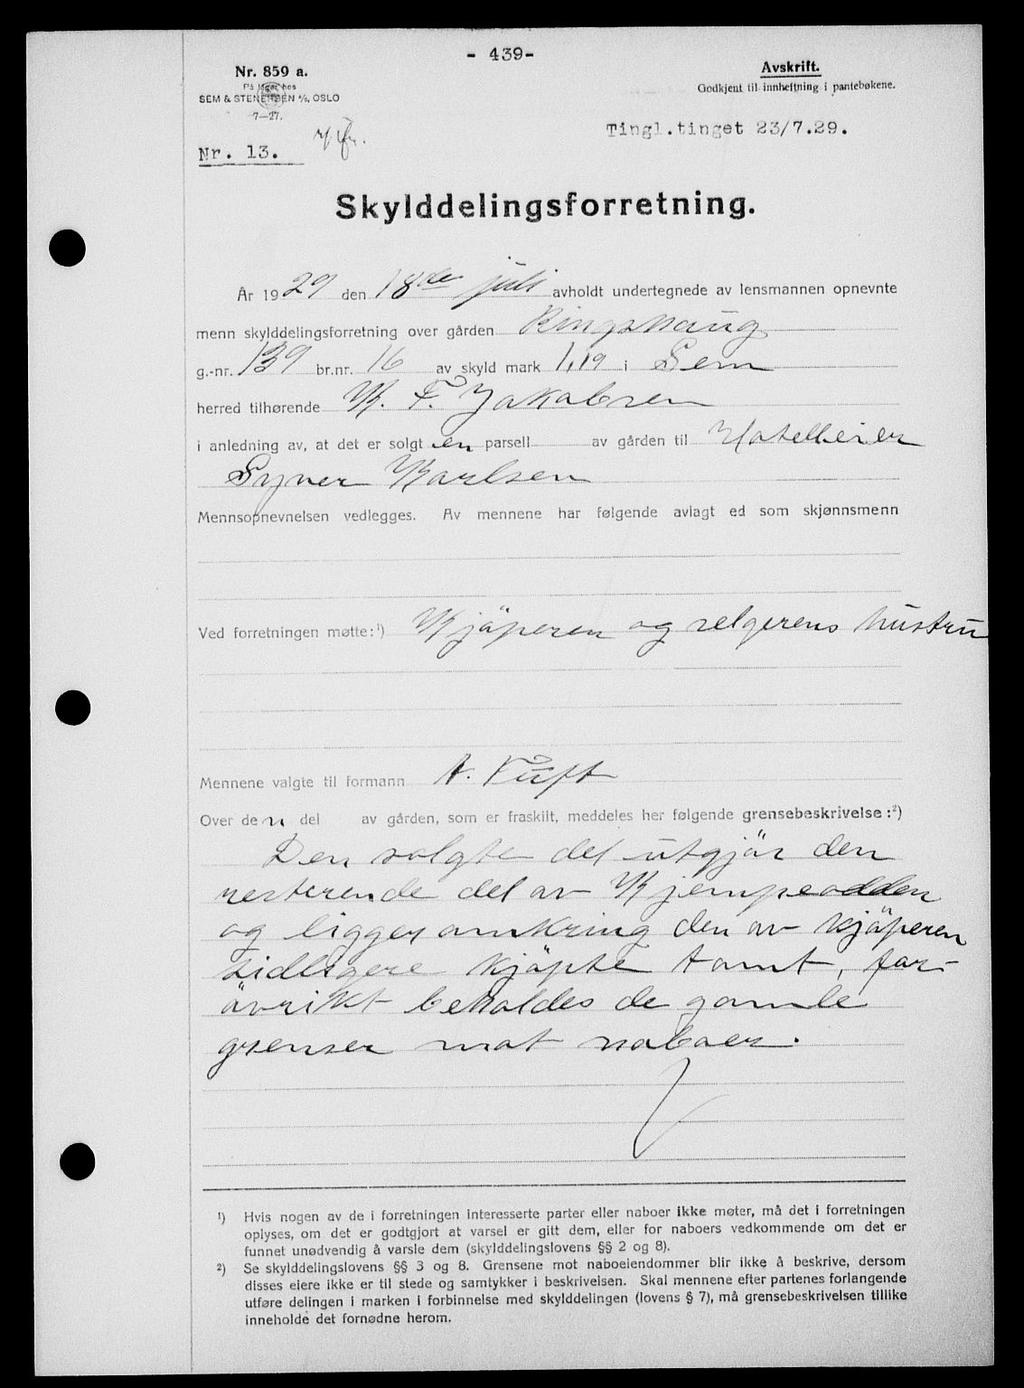 - 439-
Nr. 859 a.
På lager hos
SEM & STENERSEN A/S, OSLO
7—27.
Avskrift.
Godkjent til innheftning i pantebøkene.
Tingl.tinget 23/7.29.
Nr. 13.
Skylddelingsforretning.
År 1929 den 18de juli avholdt undertegnede av lensmannen opnevnte
menn skylddelingsforretning over gården Ringshaug
g.-nr. 139 br.nr. 16 av skyld mark 1,19 i Sem
herred tilhørende K. F. Jakobsen
i anledning av, at det er solgt en parsell av gården til Hotelleier
Syver Karlsen
Mennsopnevnelsen vedlegges. Av mennene har følgende avlagt ed som skjønnsmenn
Ved forretningen møtte:¹) Kjöperen og selgerens hustru
Mennene valgte til formann A. Tuft
Over den del av gården, som er fraskilt, meddeles her følgende grensebeskrivelse:²)
Den solgte del utgjör den
resterende del av Kjempeodden
og ligger omkring den av kjöperen
tidligere kjöpte tomt, for-
övrikt beholdes de gamle
grenser mot naboer.
¹) Hvis nogen av de i forretningen interesserte parter eller naboer ikke møter, må det i forretningen
oplyses, om det er godtgjort at varsel er gitt dem, eller for naboers vedkommende om det er
funnet unødvendig å varsle dem (skylddelingslovens §§ 2 og 8).
²) Se skylddelingslovens §§ 3 og 8. Grensene mot naboeiendommer blir ikke å beskrive, dersom
disses eiere ikke er til stede og samtykker i beskrivelsen. Skal mennene efter partenes forlangende
utføre delingen i marken i forbinnelse med skylddelingen (lovens § 7), må grensebeskrivelsen tillike
inneholde det fornødne herom.